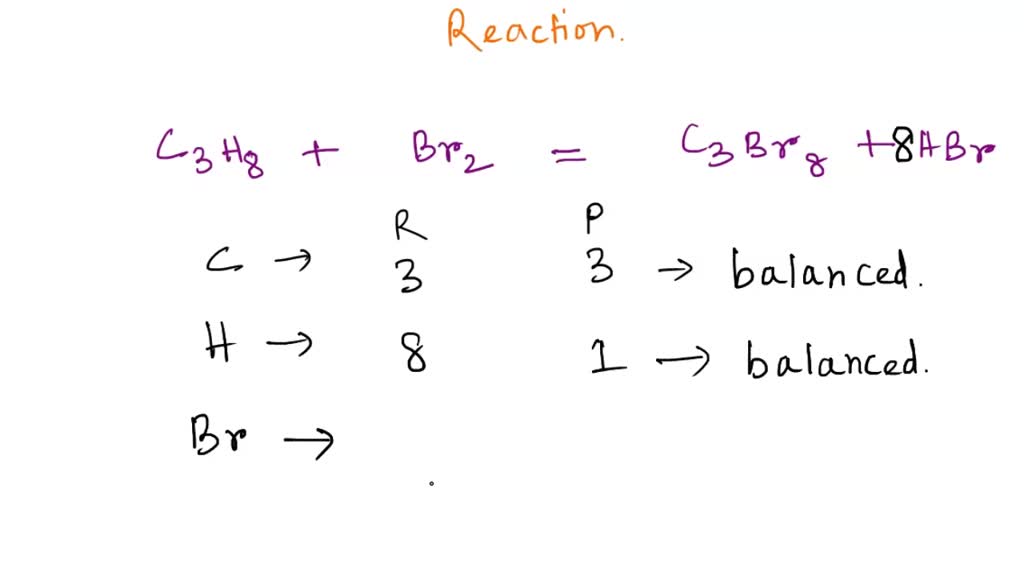 Reaction.
C₃H₈ + Br₂ = C₃Br₈ + 8HBr
R P
C → 3 3 → balanced.
H → 8 1 → balanced.
Br →